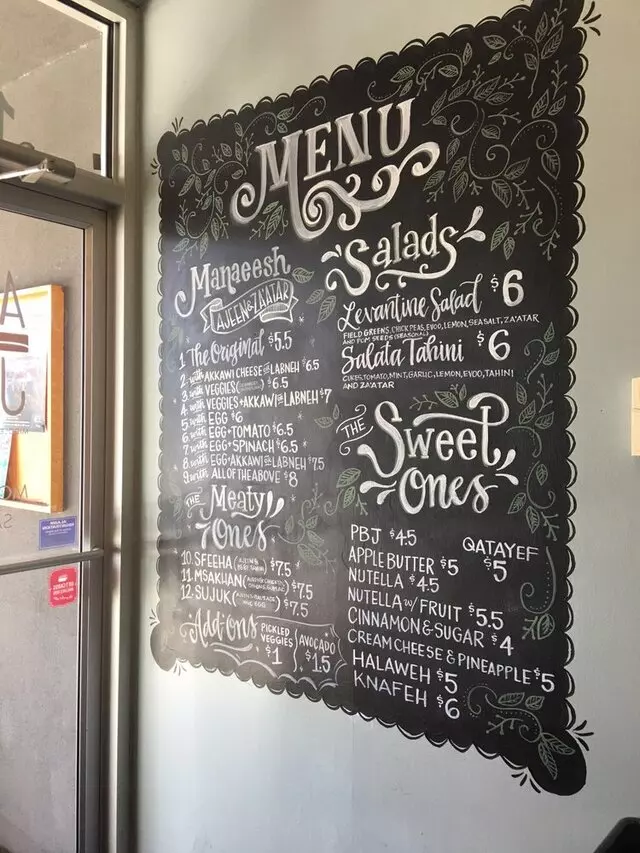 MENU
Manaeesh
AJEEN & ZA'ATAR
1 The Original $5.5
2 with AKKAWI CHEESE or LABNEH $6.5
3 with VEGGIES $6.5
4 with VEGGIES + AKKAWI or LABNEH $7
5 with EGG $6
6 with EGG + TOMATO $6.5
7 with EGG + SPINACH $6.5
8 with EGG + AKKAWI or LABNEH $7.5
9 with ALL OF THE ABOVE $8
THE Meaty Ones
10. SFEEHA $7.5
11. MSAKHAN $7.5
12. SUJUK $7.5
Add-ons
PICKLED VEGGIES $1
AVOCADO $1.5
Salads
Levantine Salad $6
FIELD GREENS, CHICK PEAS, EVOO, LEMON, SEA SALT, ZA'ATAR
AND POM SEEDS (SEASONAL)
Salata Tahini $6
CUKES, TOMATO, MINT, GARLIC, LEMON, EVOO, TAHINI
AND ZA'ATAR
THE
Sweet
Ones
PBJ $4.5
APPLE BUTTER $5
NUTELLA $4.5
NUTELLA w/ FRUIT $5.5
CINNAMON & SUGAR $4
CREAM CHEESE & PINEAPPLE $5
HALAWEH $5
KNAFEH $6
QATAYEF
$5